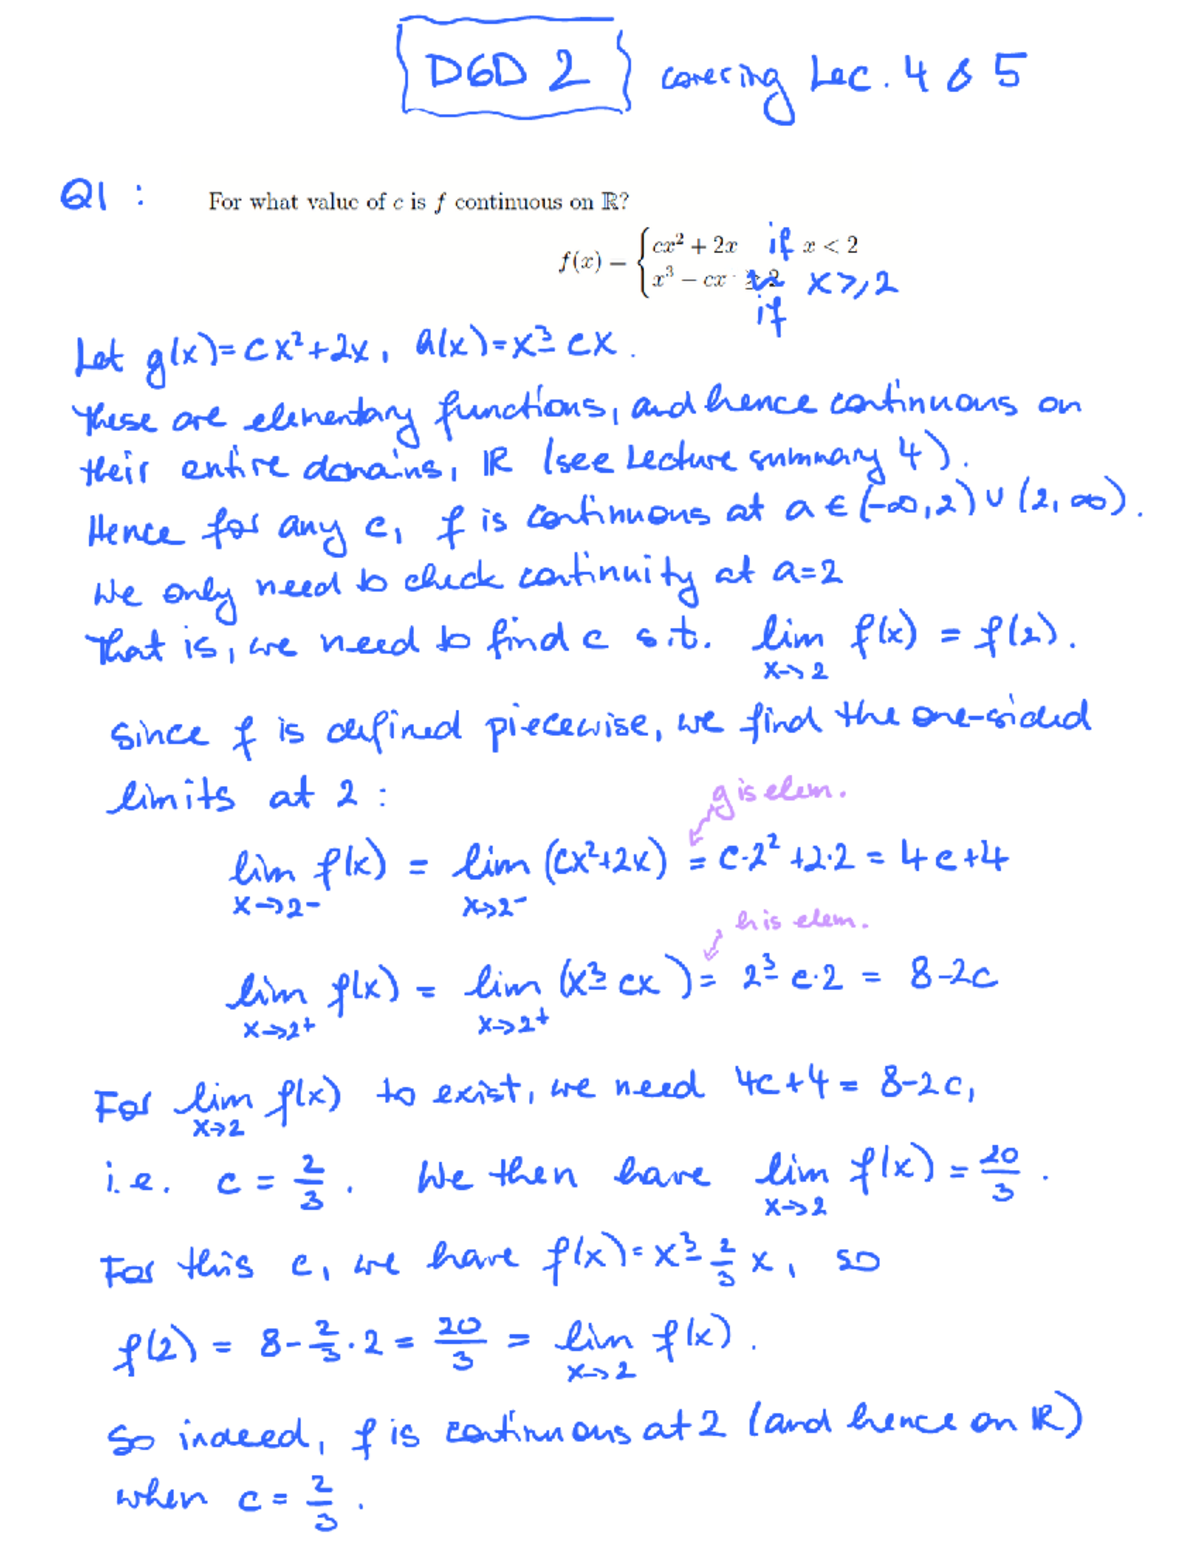 DGD 2 covering Lec. 4 & 5
Q1 : For what value of c is f continuous on ℝ?
f(x) = { cx² + 2x if x < 2
x³ − cx if x ≥ 2
Let g(x) = cx²+2x, h(x) = x³ − cx.
These are elementary functions, and hence continuous on
their entire domains, ℝ (see Lecture summary 4).
Hence for any c, f is continuous at a ∈ (-∞,2) ∪ (2,∞).
We only need to check continuity at a=2
That is, we need to find c s.t. lim f(x) = f(2).
x→2
Since f is defined piecewise, we find the one-sided
limits at 2 :
g is elem.
lim f(x) = lim (cx²+2x) = c·2² +2·2 = 4c+4
x→2⁻ x→2⁻
h is elem.
lim f(x) = lim (x³ − cx) = 2³ − c·2 = 8-2c
x→2⁺ x→2⁺
For lim f(x) to exist, we need 4c+4 = 8-2c,
x→2
i.e. c = 2/3. We then have lim f(x) = 20/3.
x→2
For this c, we have f(x) = x³ − 2/3 x, so
f(2) = 8 - 2/3 · 2 = 20/3 = lim f(x).
x→2
So indeed, f is continuous at 2 (and hence on ℝ)
when c = 2/3.